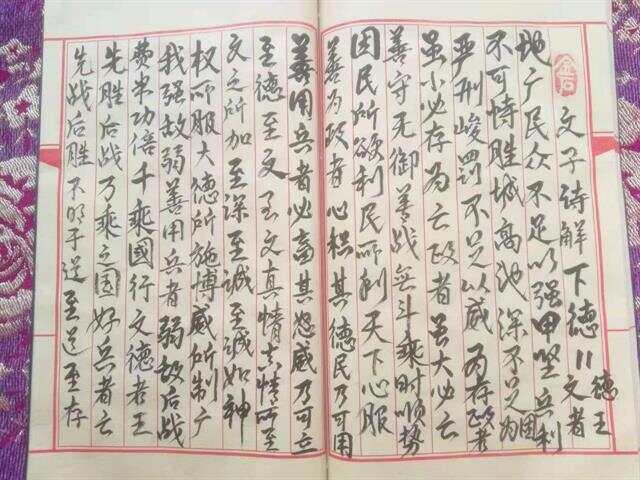 文子诗解 下德11 文者德王
地广民众不足以强甲坚兵利
不可恃胜城高池深不足为固
严刑峻罚不足以威为存政者
虽小必存为亡政者虽大必亡
善守无御善战无斗乘时顺势
因民所欲利民而利天下心服
善为政者心积其德民乃可用
善用兵者必畜其怒威乃可立
至德至文至文真情真情所至
文之所加至深至诚至诚如神
权所服大德所施博威所制广
我强敌弱善用兵者弱敌后战
费半功倍千乘國行文德者王
先胜后战万乘之国好兵者亡
先战后胜不明于道至道至存